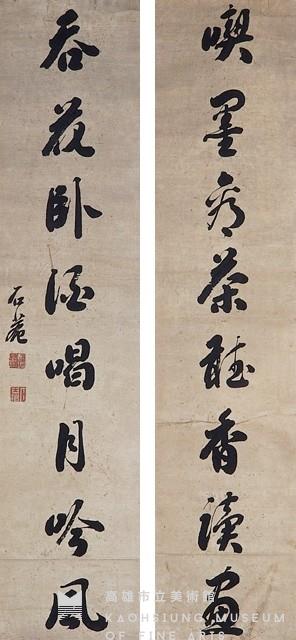 喫墨看茶聽香讀畫
吞花臥酒喝月吟風
石菴
高雄市立美術館
KAOHSIUNG MUSEUM
OF FINE ARTS